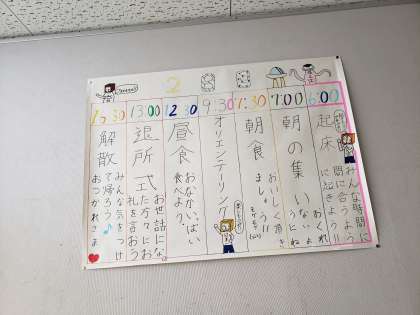 2日目
6:00
起床
みんな時間に
間に合うよう
に起きよう!!
7:00
朝の集い
おくれ
ないよ
うにね
7:30
朝食
おいしく頂き
ましょう
9:30
オリエンテーリング
12:30
昼食
おなかいっぱい
食べよう
13:00
退所式
お世話にな
た方々にお
礼を言おう
解散
みんな気をつけ
て帰ろう♪
おつかれさま